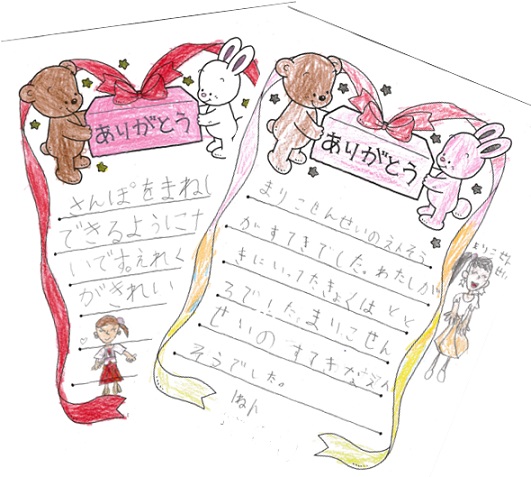 ありがとう
さんぽをまね
できるように
いです。えれく
がきれい
ありがとう
まりこせんせいのえんそう
がすてきでした。わたしが
きにいってたきょくはとと
ろでした。まりこせん
せいのすてきなえん
そうでした。